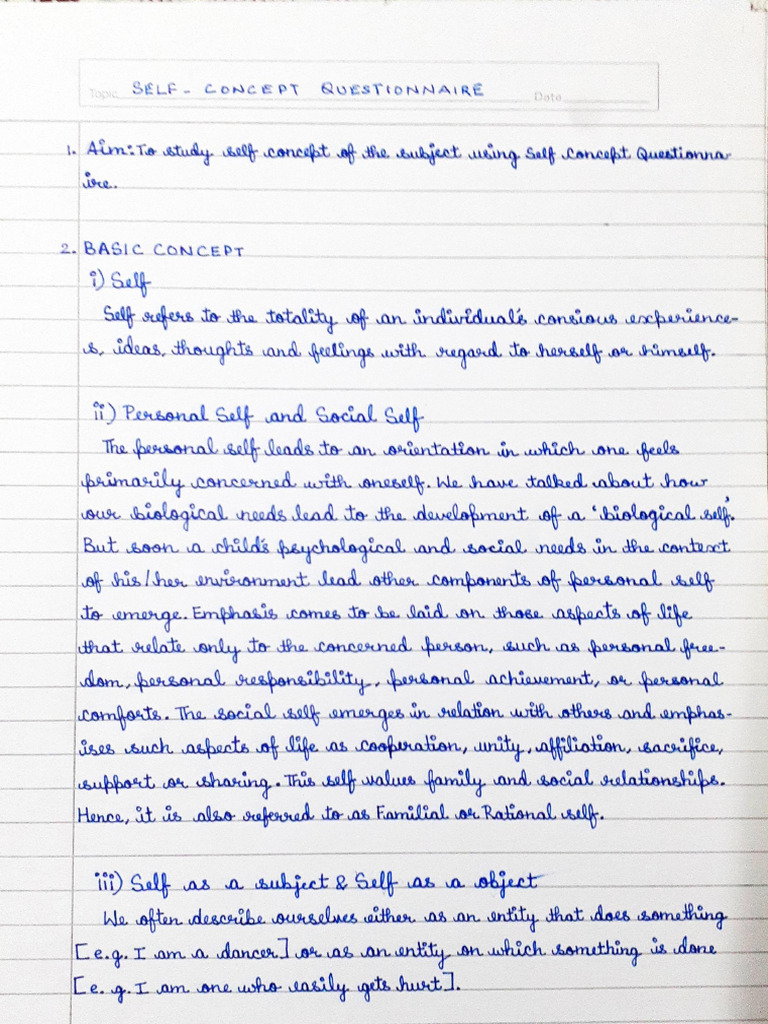 Topic SELF - CONCEPT QUESTIONNAIRE Date
1. Aim: To study self concept of the subject using Self Concept Questionna-
ire.
2. BASIC CONCEPT
i) Self
Self refers to the totality of an individual's consious experience-
s, ideas, thoughts and feelings with regard to herself or himself.
ii) Personal Self and Social Self
The personal self leads to an orientation in which one feels
primarily concerned with oneself. We have talked about how
our biological needs lead to the development of a 'biological self'.
But soon a child's psychological and social needs in the context
of his/her environment lead other components of personal self
to emerge. Emphasis comes to be laid on those aspects of life
that relate only to the concerned person, such as personal free-
dom, personal responsibility, personal achievement, or personal
comforts. The social self emerges in relation with others and emphas-
ises such aspects of life as cooperation, unity, affiliation, sacrifice,
support or sharing. This self values family and social relationships.
Hence, it is also referred to as Familial or Rational self.
iii) Self as a subject & Self as a object
We often describe ourselves either as an entity that does something
[e.g. I am a dancer] or as an entity on which something is done
[e.g. I am one who easily gets hurt].